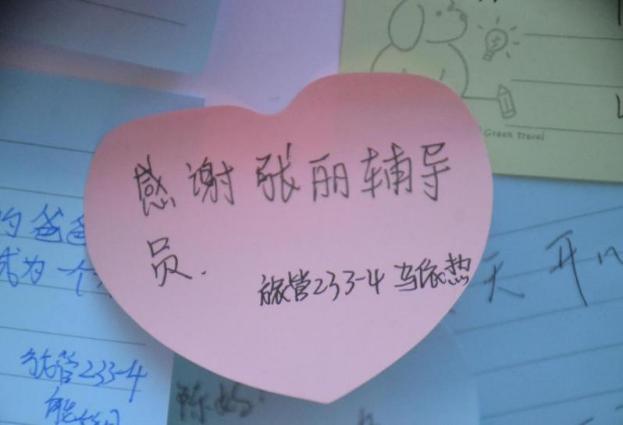 感谢张丽辅导
员.
旅管233-4 乌依热
Green travel
的爸爸
成为一个
旅管233-4
天开心